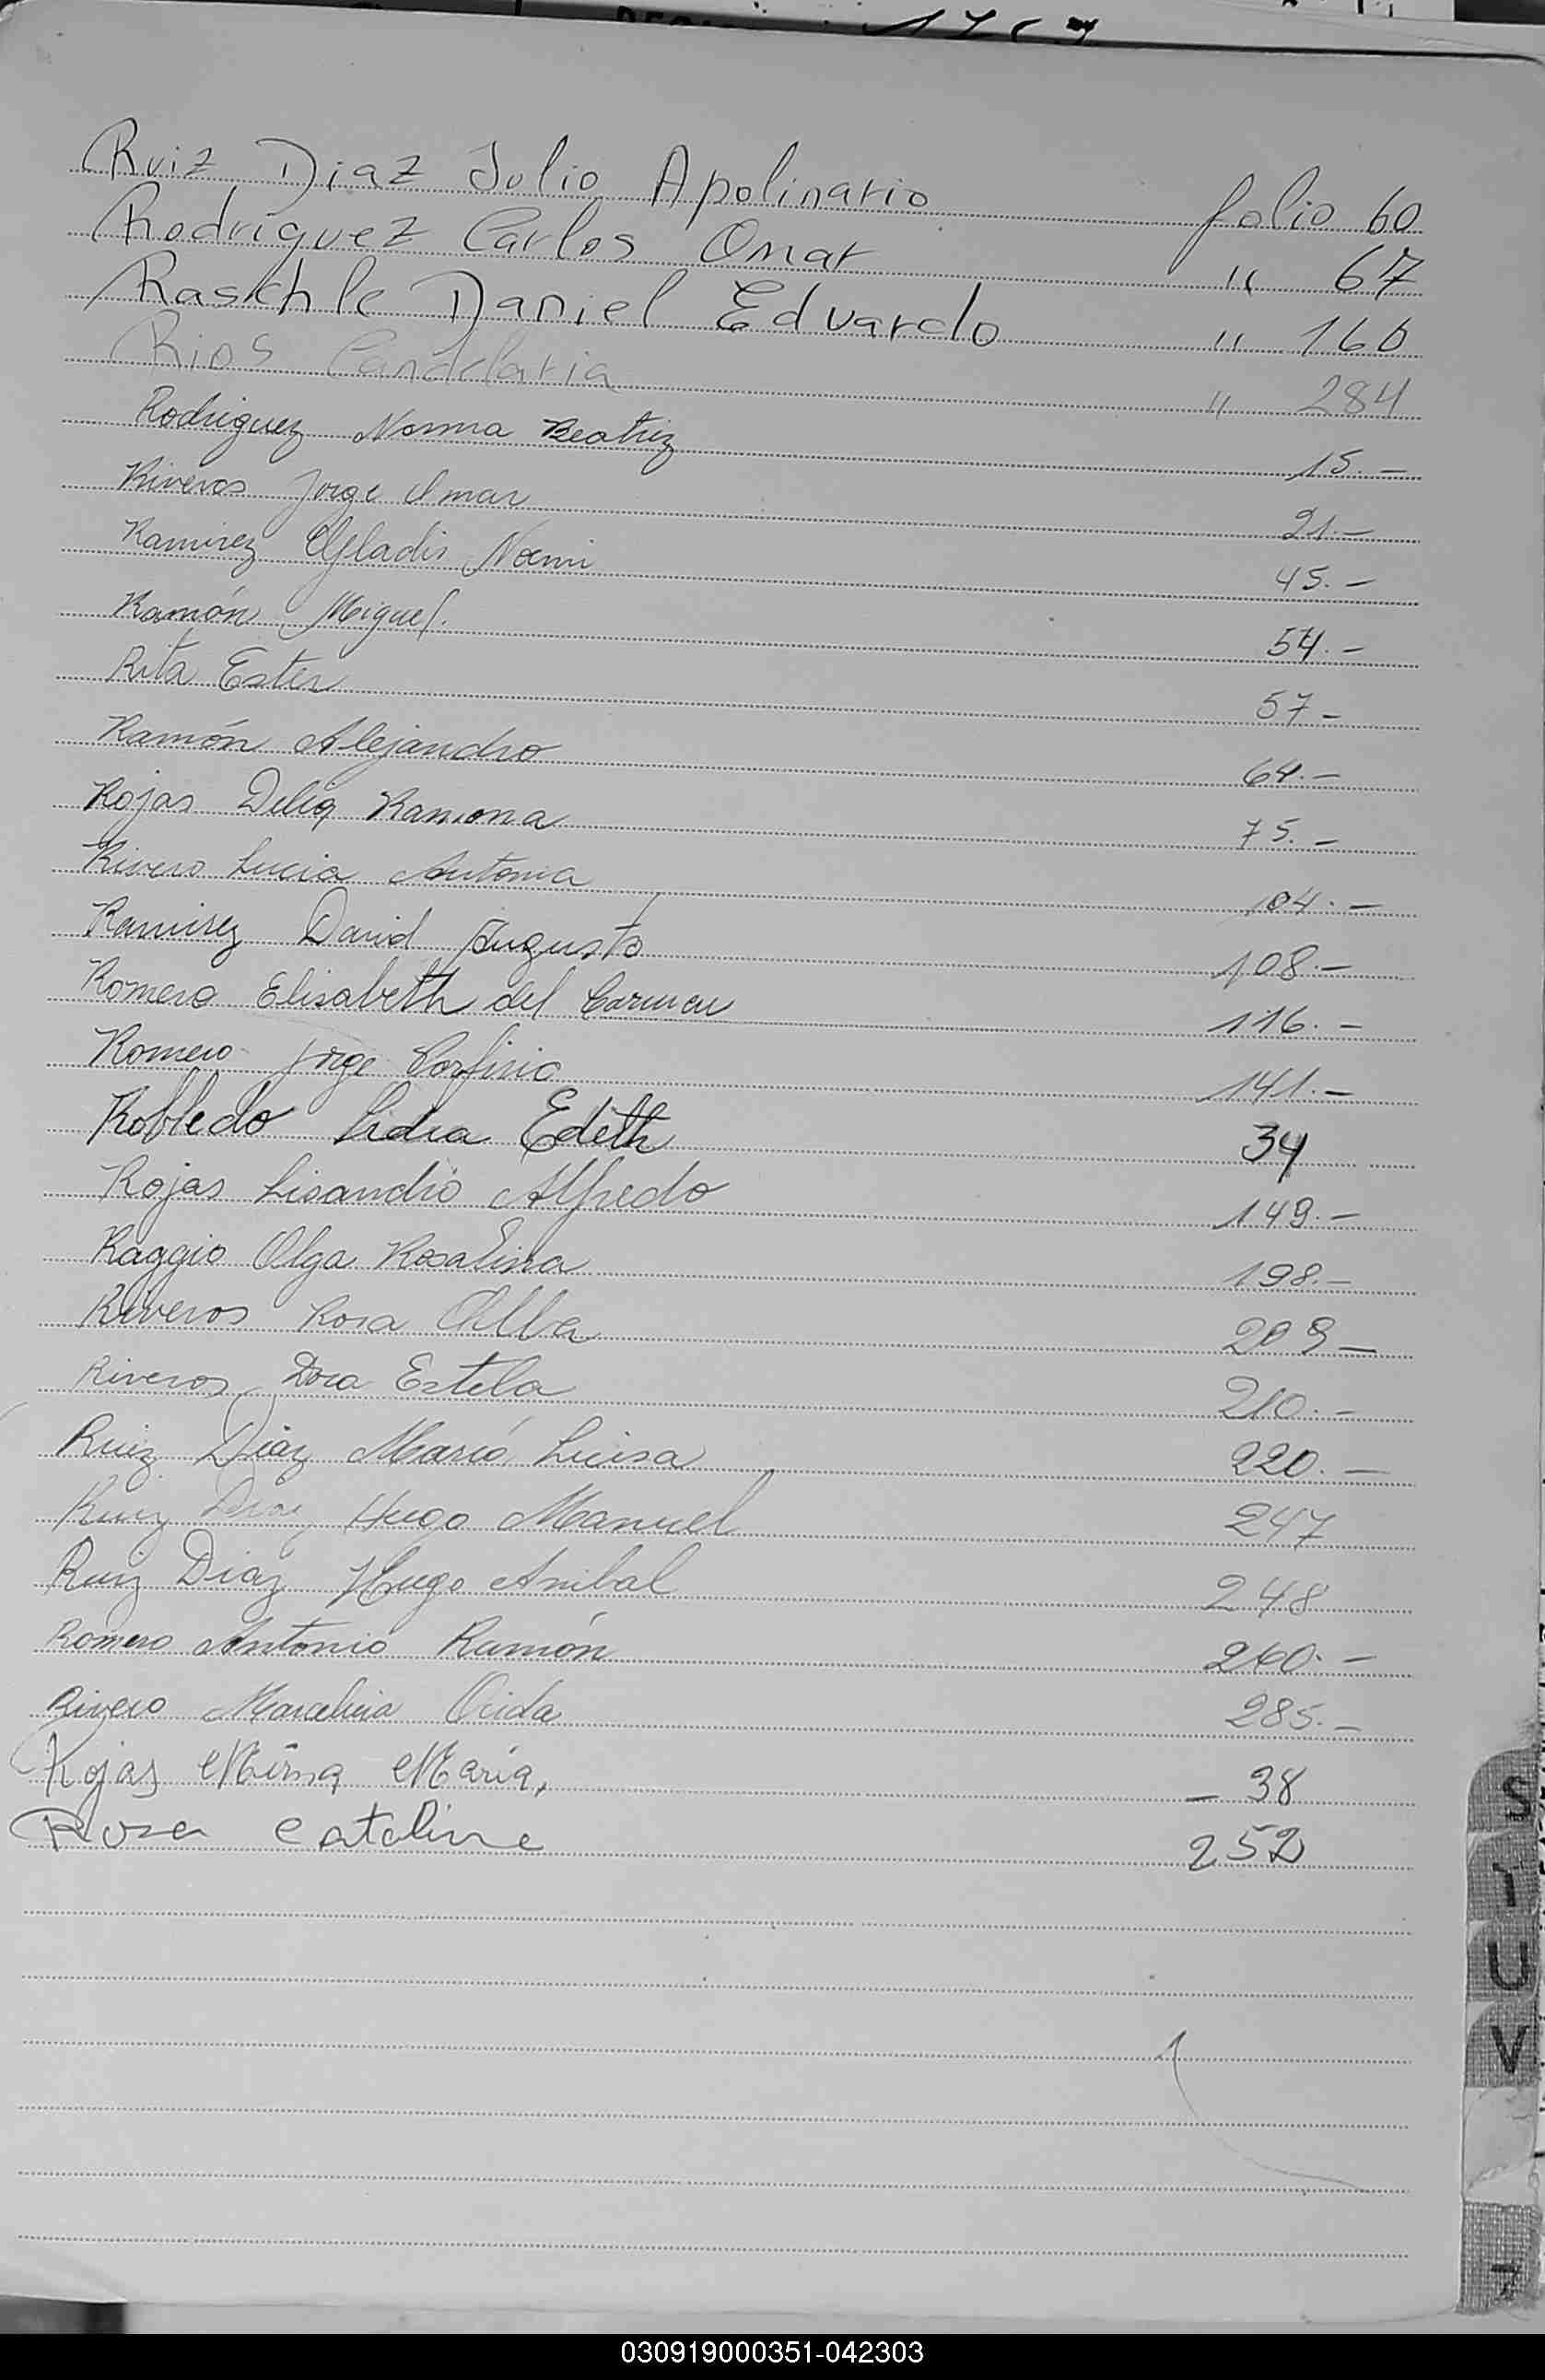 Ruiz Diaz Julio Apolinario folio 60
Rodríguez Carlos Omar " 67
Raschle Daniel Eduardo " 166
Rios Candelaria " 284
Rodriguez Norma Beatriz 15.-
Riveros Jorge Omar 21.-
Ramirez Gladis Noemi 45.-
Ramón Miguel. 54.-
Rita Ester 57-
Ramón Alejandro 64.-
Rojas Delia Ramona 75.-
Rivero Lucia Antonia 104.-
Ramirez David Augusto 108.-
Romero Elisabeth del Carmen 116.-
Romero Jorge Porfirio 141.-
Robledo Lidia Edith 34
Rojas Lisandro Alfredo 149.-
Raggio Olga Rosalina 198.-
Riveros Rosa Alba 209-
Riveros Dora Estela 210.-
Ruiz Diaz María Luisa 220.-
Ruiz Diaz Hugo Manuel 247
Ruiz Diaz Hugo Anibal 248
Romero Antonio Ramón 260.-
Rivero Marcelina 285.-
Rojas Mirna María, - 38
Rosa Cataline 252
S
T
U
V
Z
030919000351-042303